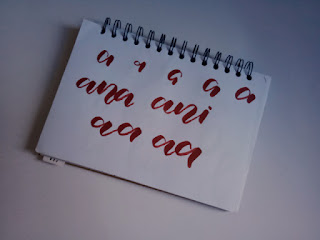 a a a a a
ana ani
aa aa